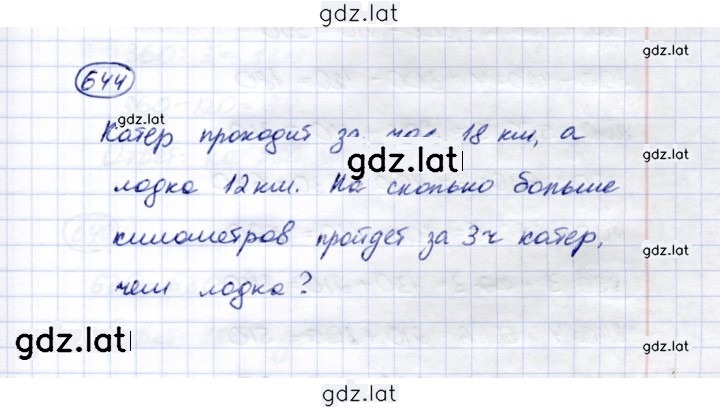 gdz.lat
gdz.lat
644
gdz.lat
Катер проходит за час 18 км, а
gdz.lat
лодка 12 км. На сколько больше
километров пройдет за 3 ч катер,
gdz.lat
чем лодка?
gdz.lat
gdz.lat
gdz.lat